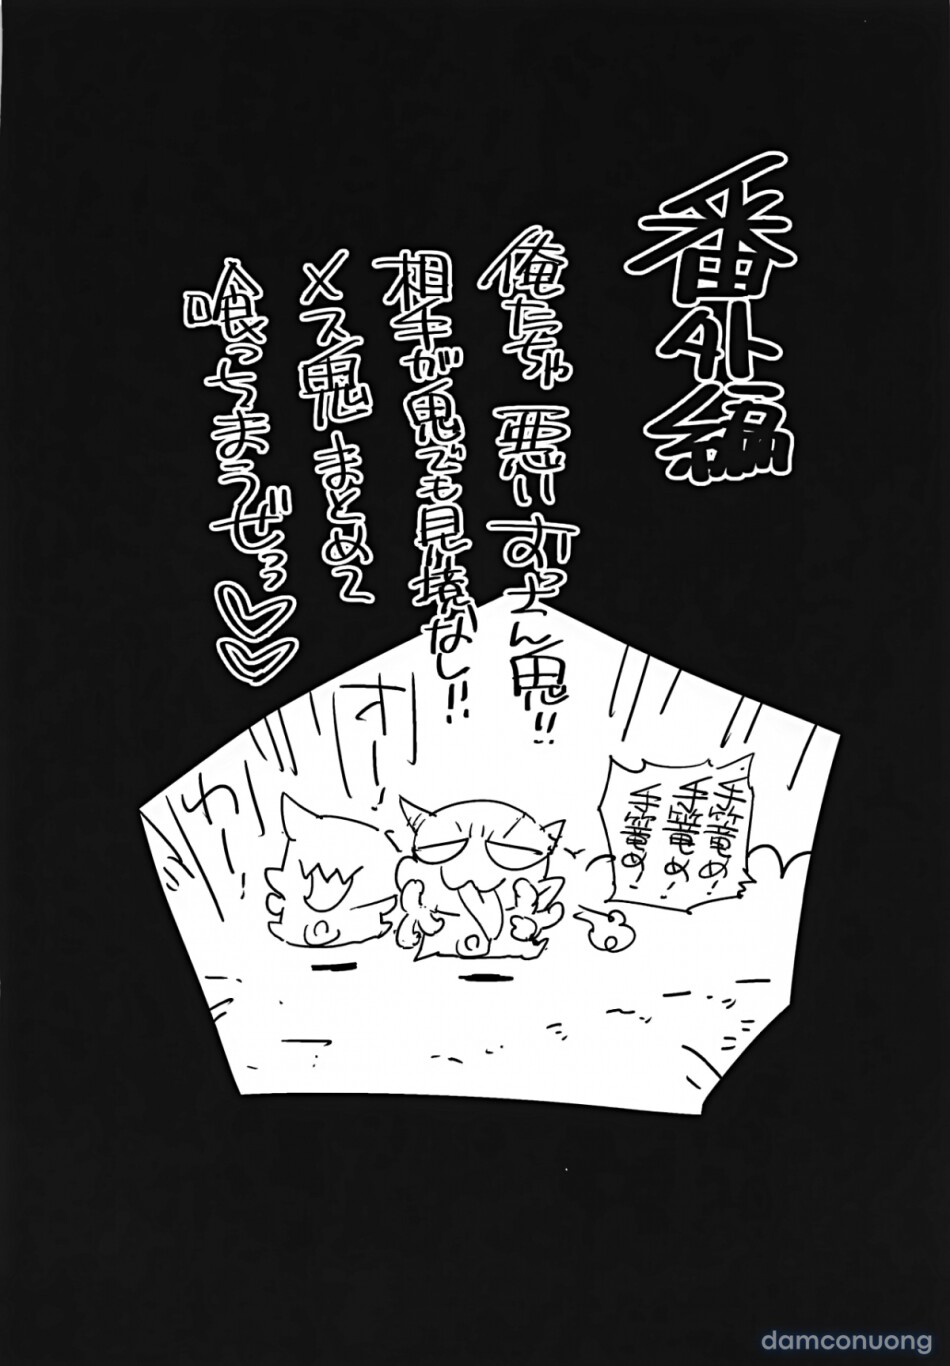 番外編
俺たちゃ悪いおっさん鬼!!
相手が鬼でも見境なし!!
メス鬼まとめて
喰っちまうぜぇぇ♡♡
手篭め!
手篭め!
手篭め!
damconuong